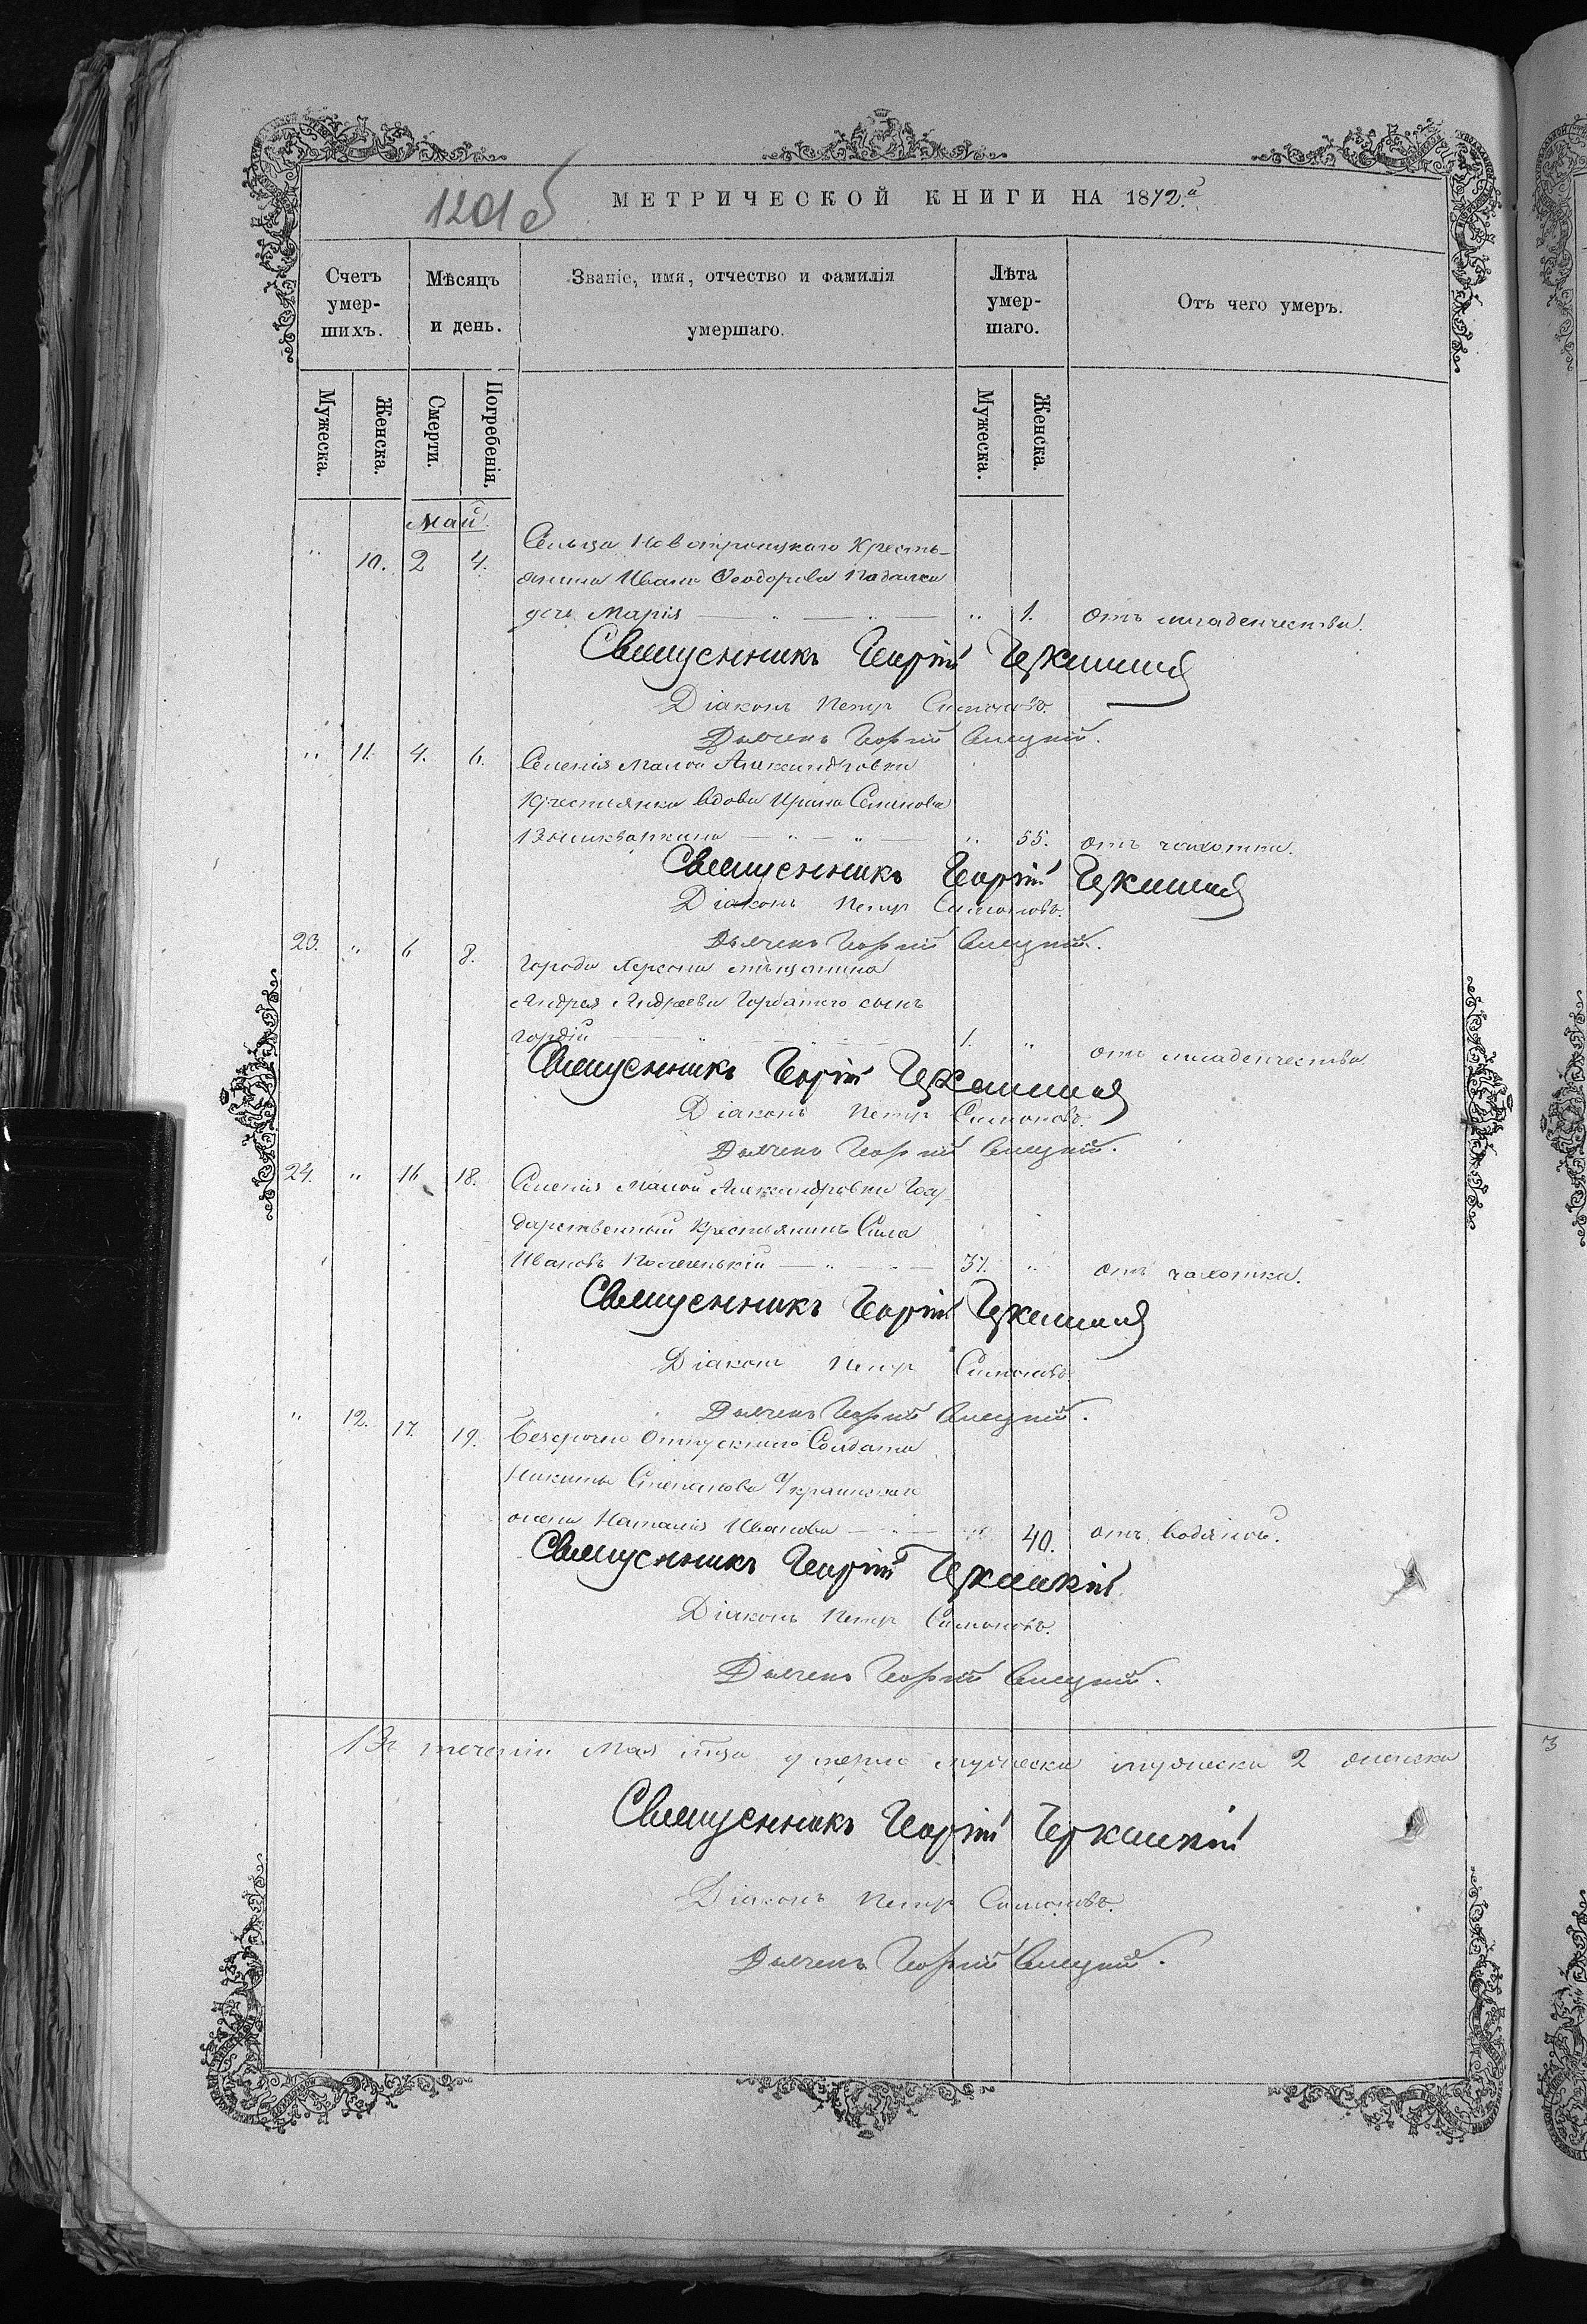 1201 об
МЕТРИЧЕСКОЙ КНИГИ НА 1872й
Счетъ умер-шихъ.
Мѣсяцъ и день.
Званіе, имя, отчество и фамилія умершаго.
Лѣта умер-шаго.
Отъ чего умеръ.
Мужеска. Женска. Смерти. Погребенія. Мужеска. Женска.
Май.
" 10. 2 4. Сельца Новотроицкаго Кресть-
янина Ивана Ѳеодорова Падалки
дочь Марія — " — " — " 1. отъ младенчества.
Священникъ Георгій
Діаконъ Петръ Симоновъ.
Дьячекъ Георгій
" 11. 4. 6. Селенія Малой Александровки
Крестьянка вдова Ирина Семенова
— " — " — " 55. отъ чахотки.
Священникъ Георгій
Діаконъ Петръ Симоновъ.
Дьячекъ Георгій
23. " 6 8. Города Херсона мѣщанина
Андрея Андреева Горбатаго сынъ
Гордій 1. " отъ младенчества
Священникъ Георгій
Діаконъ Петръ Симоновъ.
Дьячекъ Георгій
24. " 16 18. Селенія Малой Александровки Госу
дарственный Крестьянинъ Сила
Ивановъ — " — 37. " отъ чахотки.
Священникъ Георгій
Діаконъ Петръ Симоновъ.
Дьячекъ Георгій
" 12. 17. 19. Безсрочно Отпускнаго Солдата
Никиты Степанова Украинскаго
жена Наталія Иванова — " — 40. отъ водяной.
Священникъ Георгій
Діаконъ Петръ Симоновъ.
Дьячекъ Георгій
Въ теченіи Мая мца умерло мужеска 2 женска
Священникъ Георгій
Діаконъ Петръ Симоновъ.
Дьячекъ Георгій
3